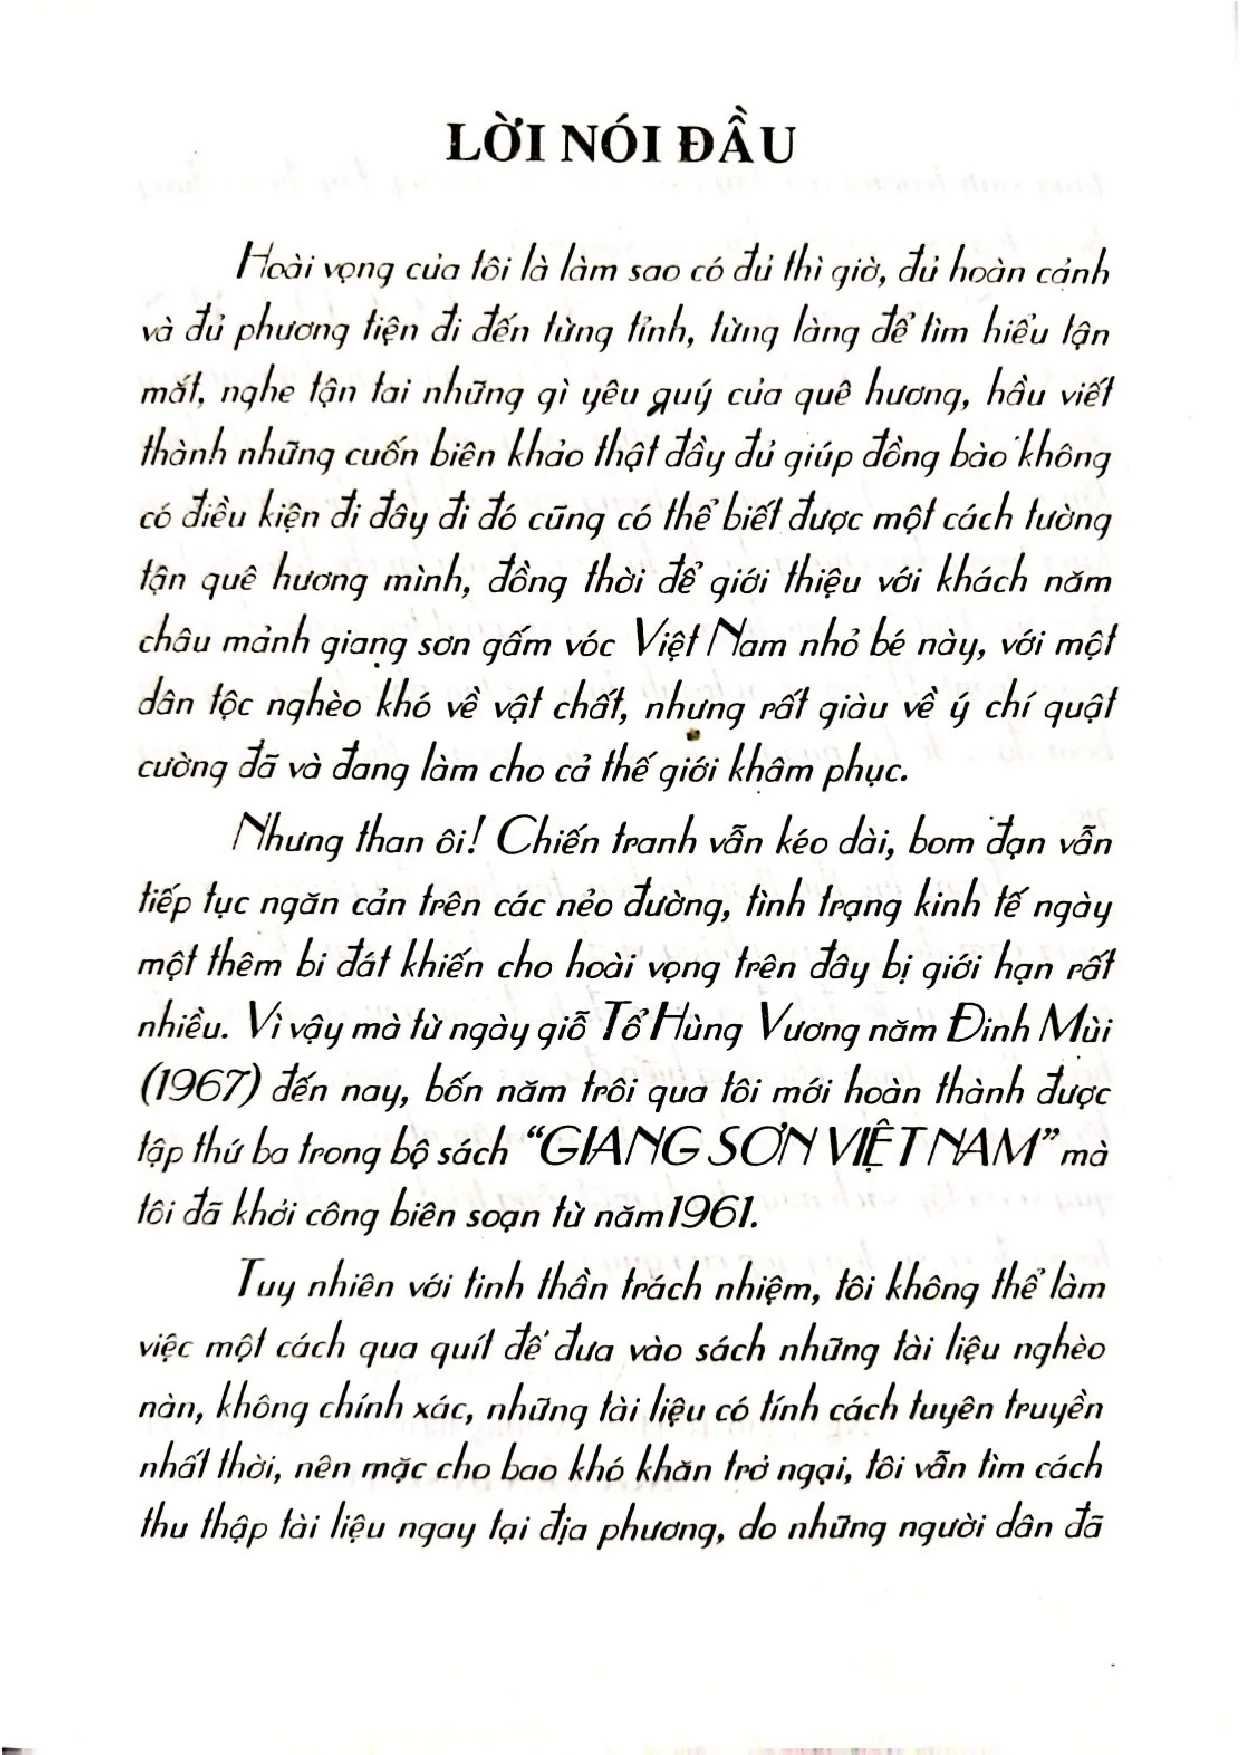 LỜI NÓI ĐẦU
Hoài vọng của tôi là làm sao có đủ thì giờ, đủ hoàn cảnh
và đủ phương tiện đi đến từng tỉnh, từng làng để tìm hiểu tận
mắt, nghe tận tai những gì yêu quý của quê hương, hầu viết
thành những cuốn biên khảo thật đầy đủ giúp đồng bào không
có điều kiện đi đây đi đó cũng có thể biết được một cách tường
tận quê hương mình, đồng thời để giới thiệu với khách năm
châu mảnh giang sơn gấm vóc Việt Nam nhỏ bé này, với một
dân tộc nghèo khó về vật chất, nhưng rất giàu về ý chí quật
cường đã và đang làm cho cả thế giới khâm phục.
Nhưng than ôi! Chiến tranh vẫn kéo dài, bom đạn vẫn
tiếp tục ngăn cản trên các nẻo đường, tình trạng kinh tế ngày
một thêm bi đát khiến cho hoài vọng trên đây bị giới hạn rất
nhiều. Vì vậy mà từ ngày giỗ Tổ Hùng Vương năm Đinh Mùi
(1967) đến nay, bốn năm trôi qua tôi mới hoàn thành được
tập thứ ba trong bộ sách “GIANG SƠN VIỆT NAM” mà
tôi đã khởi công biên soạn từ năm 1961.
Tuy nhiên với tinh thần trách nhiệm, tôi không thể làm
việc một cách qua quít để đưa vào sách những tài liệu nghèo
nàn, không chính xác, những tài liệu có tính cách tuyên truyền
nhất thời, nên mặc cho bao khó khăn trở ngại, tôi vẫn tìm cách
thu thập tài liệu ngay tại địa phương, do những người dân đã